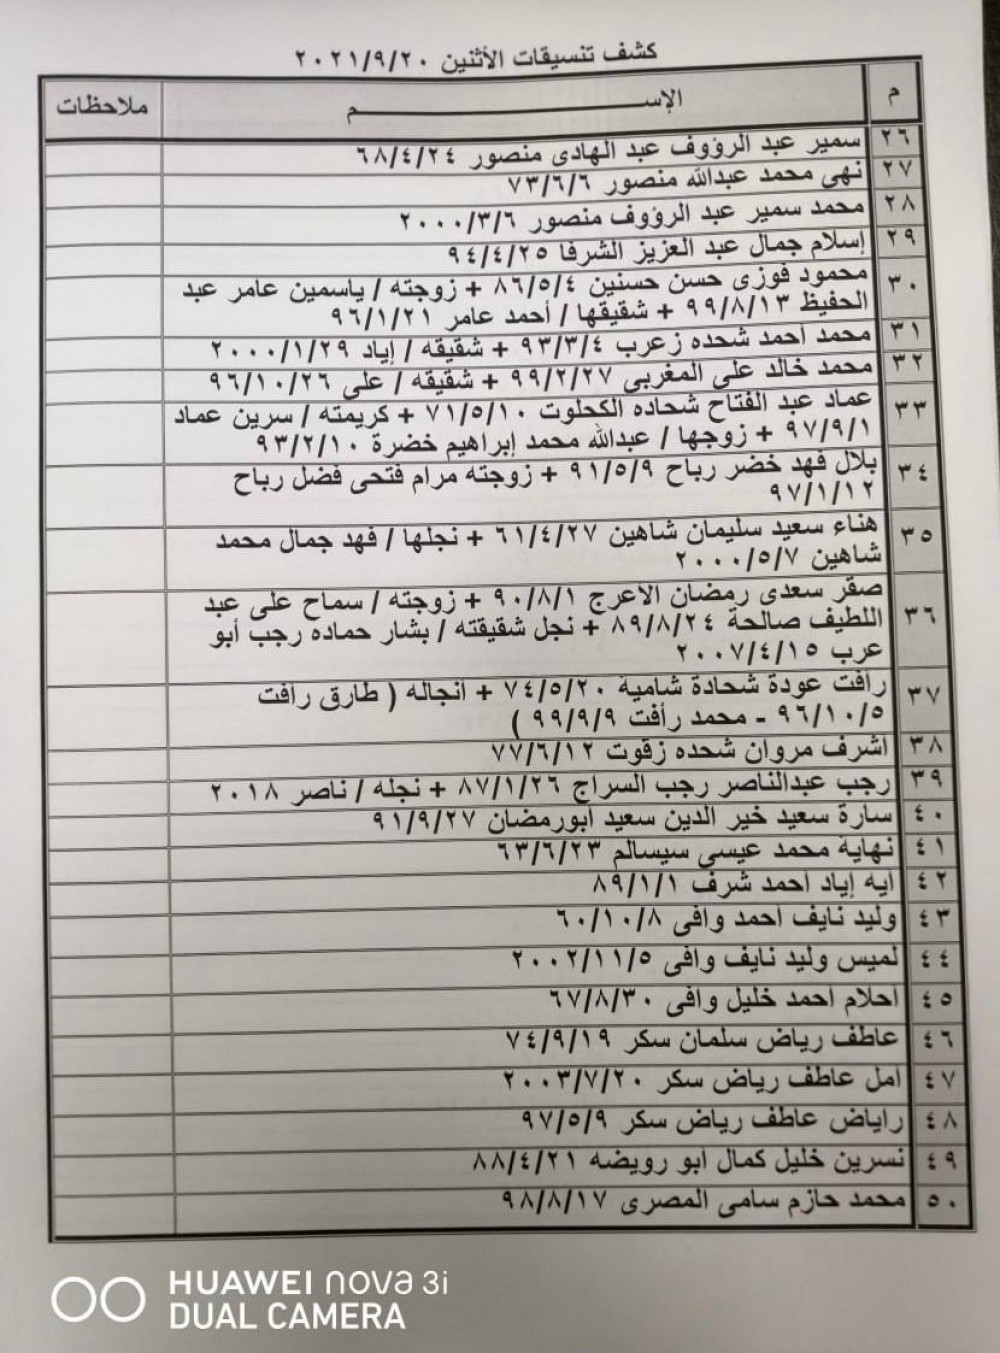 كشف تنسيقات الأثنين ٢٠٢١/٩/٢٠
م الإســـــــــــــــــــــــــم ملاحظات
٢٦ سمير عبد الرؤوف عبد الهادى منصور ٦٨/٤/٢٤
٢٧ نهى محمد عبدالله منصور ٧٣/٦/٦
٢٨ محمد سمير عبد الرؤوف منصور ٢٠٠٠/٣/٦
٢٩ إسلام جمال عبد العزيز الشرفا ٩٤/٤/٢٥
٣٠ محمود فوزى حسن حسنين ٨٦/٥/٤ + زوجته / ياسمين عامر عبد
الحفيظ ٩٩/٨/١٣ + شقيقها / أحمد عامر ٩٦/١/٢١
٣١ محمد احمد شحده زعرب ٩٣/٣/٤ + شقيقه / إياد ٢٠٠٠/١/٢٩
٣٢ محمد خالد على المغربى ٩٩/٢/٢٧ + شقيقه / على ٩٦/١٠/٢٦
٣٣ عماد عبد الفتاح شحاده الكحلوت ٧١/٥/١٠ + كريمته / سرين عماد
٩٧/٩/١ + زوجها / عبدالله محمد إبراهيم خضرة ٩٣/٢/١٠
٣٤ بلال فهد خضر رباح ٩١/٥/٩ + زوجته مرام فتحى فضل رباح
٩٧/١/١٢
٣٥ هناء سعيد سليمان شاهين ٦١/٤/٢٧ + نجلها / فهد جمال محمد
شاهين ٢٠٠٠/٥/٧
٣٦ صقر سعدى رمضان الاعرج ٩٠/٨/١ + زوجته / سماح على عبد
اللطيف صالحة ٨٩/٨/٢٤ + نجل شقيقته / بشار حماده رجب أبو
عرب ٢٠٠٧/٤/١٥
٣٧ رافت عودة شحادة شامية ٧٤/٥/٢٠ + انجاله ( طارق رافت
٩٦/١٠/٥ - محمد رأفت ٩٩/٩/٩ )
٣٨ اشرف مروان شحده زقوت ٧٧/٦/١٢
٣٩ رجب عبدالناصر رجب السراج ٨٧/١/٢٦ + نجله / ناصر ٢٠١٨
٤٠ سارة سعيد خير الدين سعيد ابورمضان ٩١/٩/٢٧
٤١ نهاية محمد عيسي سيسالم ٦٣/٦/٢٣
٤٢ ايه إياد احمد شرف ٨٩/١/١
٤٣ وليد نايف احمد وافى ٦٠/١٠/٨
٤٤ لميس وليد نايف وافى ٢٠٠٢/١١/٥
٤٥ احلام احمد خليل وافى ٦٧/٨/٣٠
٤٦ عاطف رياض سلمان سكر ٧٤/٩/١٩
٤٧ امل عاطف رياض سكر ٢٠٠٣/٧/٢٠
٤٨ راياض عاطف رياض سكر ٩٧/٥/٩
٤٩ نسرين خليل كمال ابو رويضه ٨٨/٤/٢١
٥٠ محمد حازم سامى المصرى ٩٨/٨/١٧
HUAWEI nova 3i
DUAL CAMERA